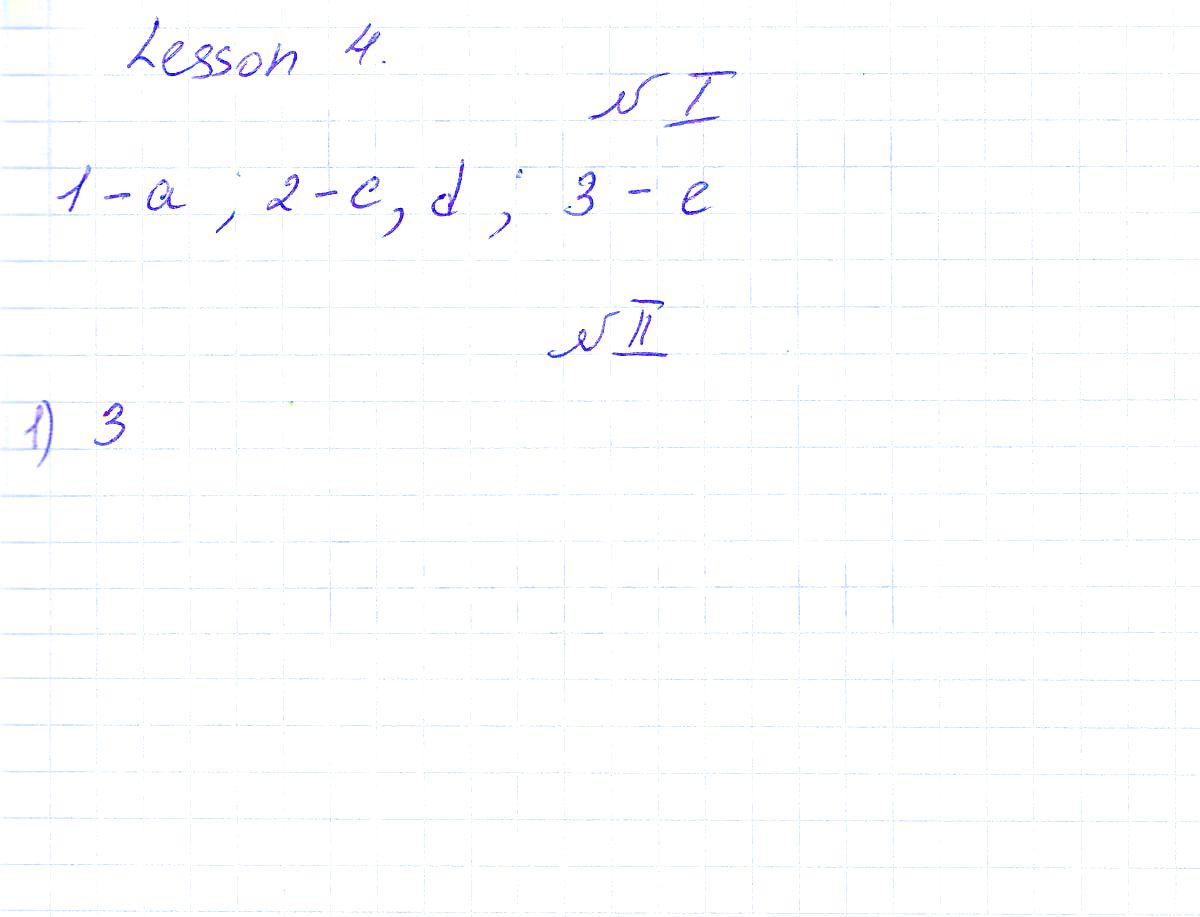 Lesson 4.
№ I
1 - a ; 2 - c, d ; 3 - e
№ II
1) 3